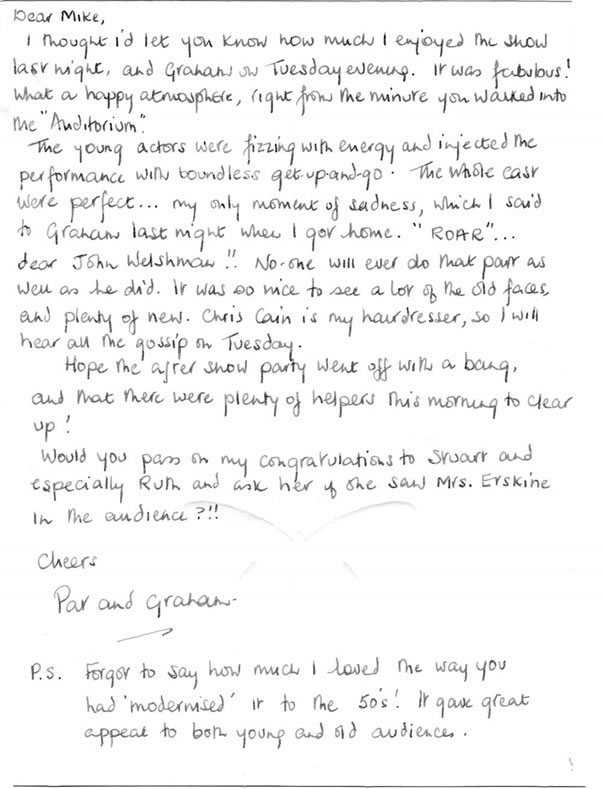 Dear Mike,
I thought i'd let you know how much I enjoyed the show
last night, and Graham on Tuesday evening. It was fabulous!
What a happy atmosphere, right from the minute you walked into
the "Auditorium".
The young actors were fizzing with energy and injected the
performance with boundless get-up-and-go. The whole cast
were perfect... my only moment of sadness, which I said
to Graham last night when I got home. "ROAR"...
dear John Welshman!! No-one will ever do that part as
well as he did. It was so nice to see a lot of the old faces,
and plenty of new. Chris Cain is my hairdresser, so I will
hear all the gossip on Tuesday.
Hope the after show party went off with a bang,
and that there were plenty of helpers this morning to clear
up!
Would you pass on my congratulations to Stuart and
especially Ruth and ask her if she saw Mrs. Erskine
in the audience?!!
Cheers
Pat and Graham.
P.S. Forgot to say how much I loved the way you
had 'modernised' it to the 50's! It gave great
appeal to both young and old audiences.